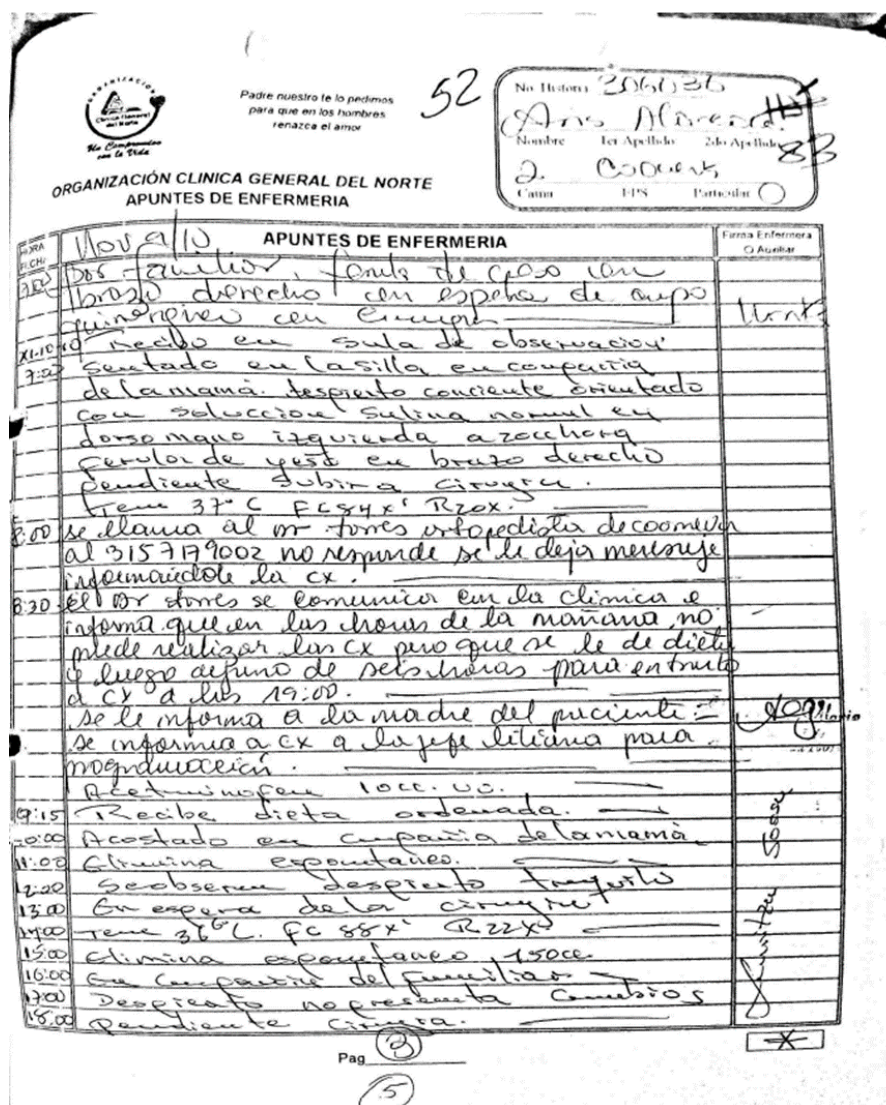 52
ORGANIZACION
Clinica General del Norte
Un Compromiso con la Vida
Padre nuestro te lo pedimos
para que en los hombres
renazca el amor
No. Historia
Moreno
Nombre 1er Apellido 2do Apellido
83
2.
Cama EPS Particular
ORGANIZACIÓN CLINICA GENERAL DEL NORTE
APUNTES DE ENFERMERIA
HORA
Nov 9/10 APUNTES DE ENFERMERIA
Firma Enfermera
O Auxiliar
7:00 Por familiar, ferula de yeso con
brazo derecho en espera de cupo
quirurgico con cirugia
XI-10-10 Recibo en sala de observacion
7:00 Sentado en la silla en compañia
de la mamá. despierto conciente orientado
con soluccion salina normal en
dorso mano izquierda a 20cc hora
ferula de yeso en brazo derecho
pendiente subir a cirugia.
Tem 37°C FC 84x' R20x'.
8:00 se llama al Dr torres ortopedista de coomeva
al 3157179002 no responde se le deja mensaje
informandole la cx.
8:30 El Dr torres se comunica con la clinica e
informa que en las horas de la mañana no
puede realizar la cx pero que se le de dieta
y luego ayuno de seis horas para entrarlo
a cx a las 19:00.
se le informa a la madre del paciente
se informa a cx a la jefe liliana para
programacion.
Acetaminofen 10cc. vo.
9:15 Recibe dieta ordenada.
10:00 Acostado en compañia de la mamá
11:00 Elimina espontaneo.
12:00 Se observa despierto tranquilo
13:00 En espera de la cirugia
14:00 Tem 36°C. FC 88x' R22x'
15:00 Elimina espontaneo 150cc.
16:00 En compañia del familiar
17:00 Despierto no presenta cambios
18:00 Pendiente cirugia.
Pag 3
5